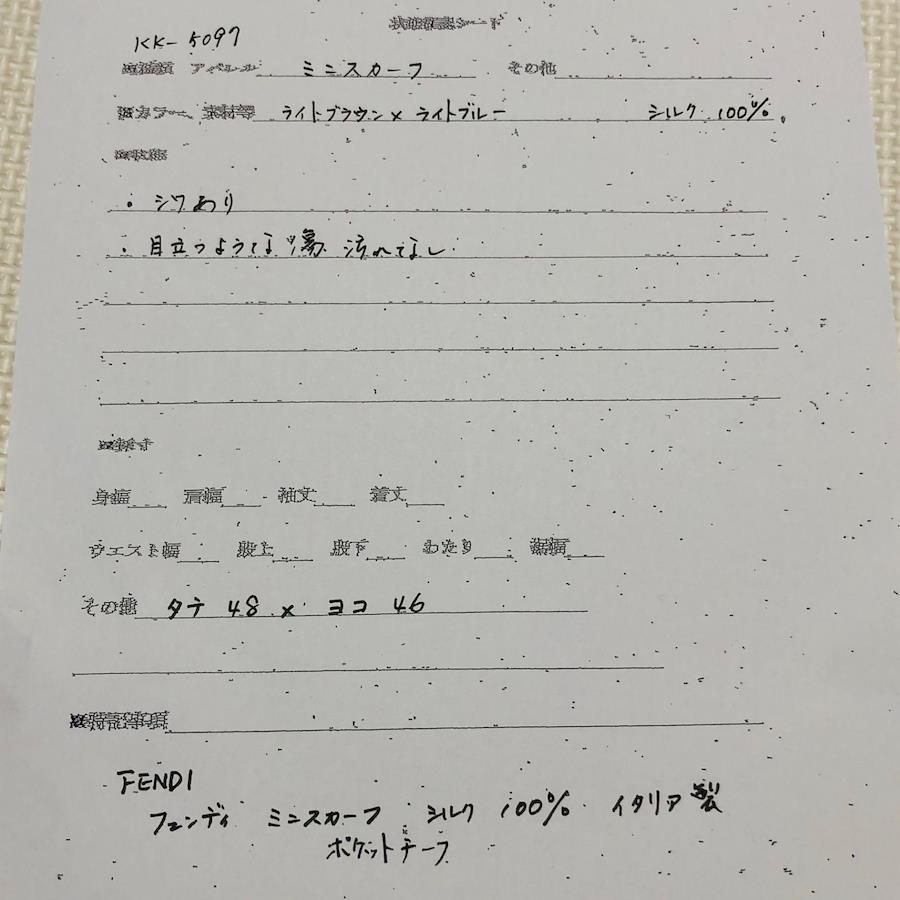 状態確認シート
KK-5097
種類 アパレル ミニスカーフ その他
カラー、素材等 ライトブラウン×ライトブルー シルク 100%
状態
・シワあり
・目立つような傷 汚れなし
採寸
身幅 肩幅 袖丈 着丈
ウエスト幅 股上 股下 わたり 裾幅
その他 タテ 48 × ヨコ 46
特記事項
FENDI
フェンディ ミニスカーフ シルク 100% イタリア製
ポケットチーフ